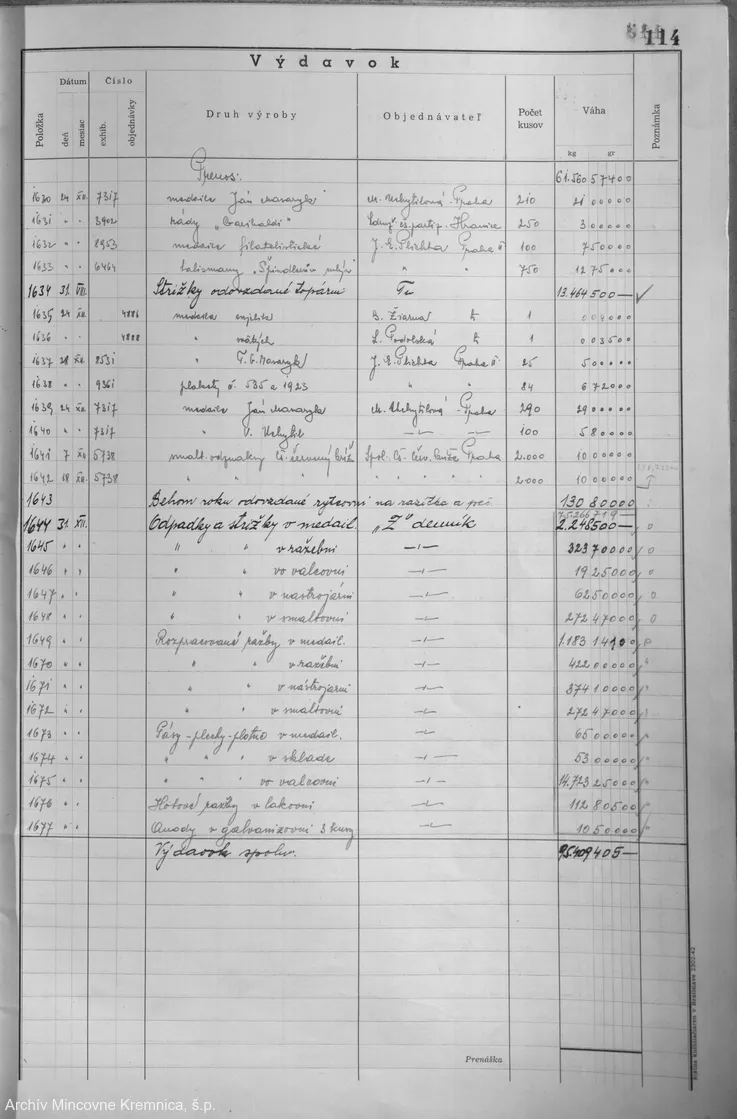 114
Výdavok
Položka Dátum deň mesiac Číslo exhib. objednávky Druh výroby Objednávateľ Počet kusov Váha kg gr Poznámka
Prenos: 61.560 57400
1630 24 XII. 7317 medaile Ján Masaryk M. Uchytilová Praha 210 21 00000
1631 " " 3902 "Garibaldi" Hranice 250 3 00000
1632 " " 8953 medaile filatelistické J. E. Plichta Praha 100 7 50000
1633 " " 6464 talismany "Špindlerův mlýn" " " 750 12 75000
1634 31. Strižky odovzdané 13.464 500—
1635 24 XII. 4886 medaila B. Žiarna 1 004000
1636 " " 4888 " L. Podolská 1 003500
1637 28 XII. 8531 " T. G. Masaryk J. E. Plichta Praha 25 5 00000
1638 " " 9361 plakety č. 535 a 1923 " " 84 6 72000
1639 24 XII. 7317 medaile Ján Masaryk M. Uchytilová Praha 290 29 00000
1640 " " 7317 " V. Uchytil —"— 100 5 80000
1641 7 XII. 5738 smalt. odznaky Čs. červený kríž Spol. Čs. červ. kríža Praha 2.000 10 00000
1642 18 XII. 5738 " " " " 2000 10 00000
1643 Behom roku odovzdané rytcovni na razítka a peč. 130 80000
75.266 719—
1644 31. XII. Odpadky a strižky v medail. "Z" denník 2.248 500—
1645 " " " " v ražebni —"— 323 70000
1646 " " " " vo valcovni —"— 19 25000
1647 " " " " v nástrojárni —"— 62 50000
1648 " " " " v smaltovni —"— 272 47000
1649 " " Rozpracované ražby v medail. —"— 1.183 14100
1670 " " " " v ražebni —"— 422 00000
1671 " " " " v nástrojárni —"— 374 10000
1672 " " " " v smaltovni —"— 272 47000
1673 " " Pásy-plechy-platno v medail. —"— 65 00000
1674 " " " " " v sklade —"— 53 00000
1675 " " " " " vo valcovni —"— 14.723 25000
1676 " " Hotové ražby v lakovni —"— 112 80500
1677 " " Anody v galvanizovni 3 kusy —"— 10 50000
Výdavok spolu. 95.409 405—
Prenáška
Archív Mincovne Kremnica, š.p.